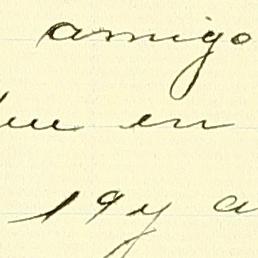 amigo
en
19 y a